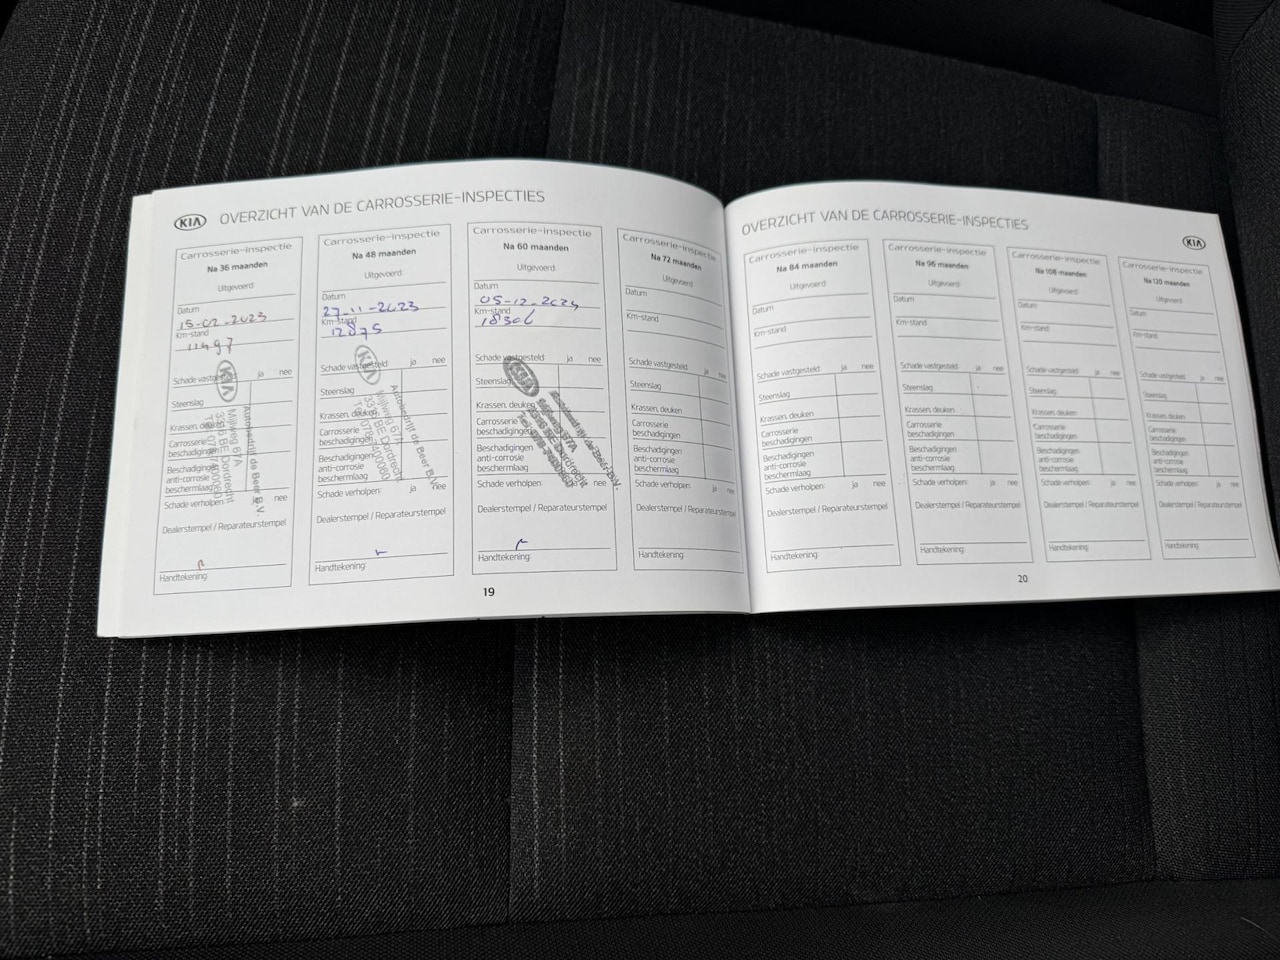 KIA OVERZICHT VAN DE CARROSSERIE-INSPECTIES
Carrosserie-inspectie
Na 36 maanden
Uitgevoerd:
Datum
15-02-2023
Km-stand
11497
Schade vastgesteld: ja nee
Steenslag
Krassen, deuken
Carrosserie
beschadigingen
Beschadigingen
anti-corrosie
beschermlaag
Schade verholpen: nee
KIA
Autobedrijf de Beer B.V.
Mijlweg 67A
Dordrecht
Dealerstempel / Reparateurstempel
Handtekening:
Carrosserie-inspectie
Na 48 maanden
Uitgevoerd:
Datum
27-11-2023
Km-stand
12875
Schade vastgesteld: ja nee
Steenslag
Krassen, deuken
Carrosserie
beschadigingen
Beschadigingen
anti-corrosie
beschermlaag
Schade verholpen: ja nee
KIA
Autobedrijf de Beer B.V.
Mijlweg 67A
BE Dordrecht
Dealerstempel / Reparateurstempel
Handtekening:
Carrosserie-inspectie
Na 60 maanden
Uitgevoerd:
Datum
05-12-2024
Km-stand
18306
Schade vastgesteld: ja nee
Steenslag
Krassen, deuken
Carrosserie
beschadigingen
Beschadigingen
anti-corrosie
beschermlaag
Schade verholpen: nee
Dealerstempel / Reparateurstempel
Handtekening:
Carrosserie-inspectie
Na 72 maanden
Uitgevoerd:
Datum
Km-stand
Schade vastgesteld: ja nee
Steenslag
Krassen, deuken
Carrosserie
beschadigingen
Beschadigingen
anti-corrosie
beschermlaag
Schade verholpen: ja nee
Dealerstempel / Reparateurstempel
Handtekening:
19
OVERZICHT VAN DE CARROSSERIE-INSPECTIES KIA
Carrosserie-inspectie
Na 84 maanden
Uitgevoerd:
Datum
Km-stand
Schade vastgesteld: ja nee
Steenslag
Krassen, deuken
Carrosserie
beschadigingen
Beschadigingen
anti-corrosie
beschermlaag
Schade verholpen: ja nee
Dealerstempel / Reparateurstempel
Handtekening:
Carrosserie-inspectie
Na 96 maanden
Uitgevoerd:
Datum
Km-stand
Schade vastgesteld: ja nee
Steenslag
Krassen, deuken
Carrosserie
beschadigingen
Beschadigingen
anti-corrosie
beschermlaag
Schade verholpen: ja nee
Dealerstempel / Reparateurstempel
Handtekening:
Carrosserie-inspectie
Na 108 maanden
Uitgevoerd:
Datum
Km-stand
Schade vastgesteld: ja nee
Steenslag
Krassen, deuken
Carrosserie
beschadigingen
Beschadigingen
anti-corrosie
beschermlaag
Schade verholpen: ja nee
Dealerstempel / Reparateurstempel
Handtekening:
Carrosserie-inspectie
Na 120 maanden
Uitgevoerd:
Datum
Km-stand
Schade vastgesteld: ja nee
Steenslag
Krassen, deuken
Carrosserie
beschadigingen
Beschadigingen
anti-corrosie
beschermlaag
Schade verholpen: ja nee
Dealerstempel / Reparateurstempel
Handtekening:
20